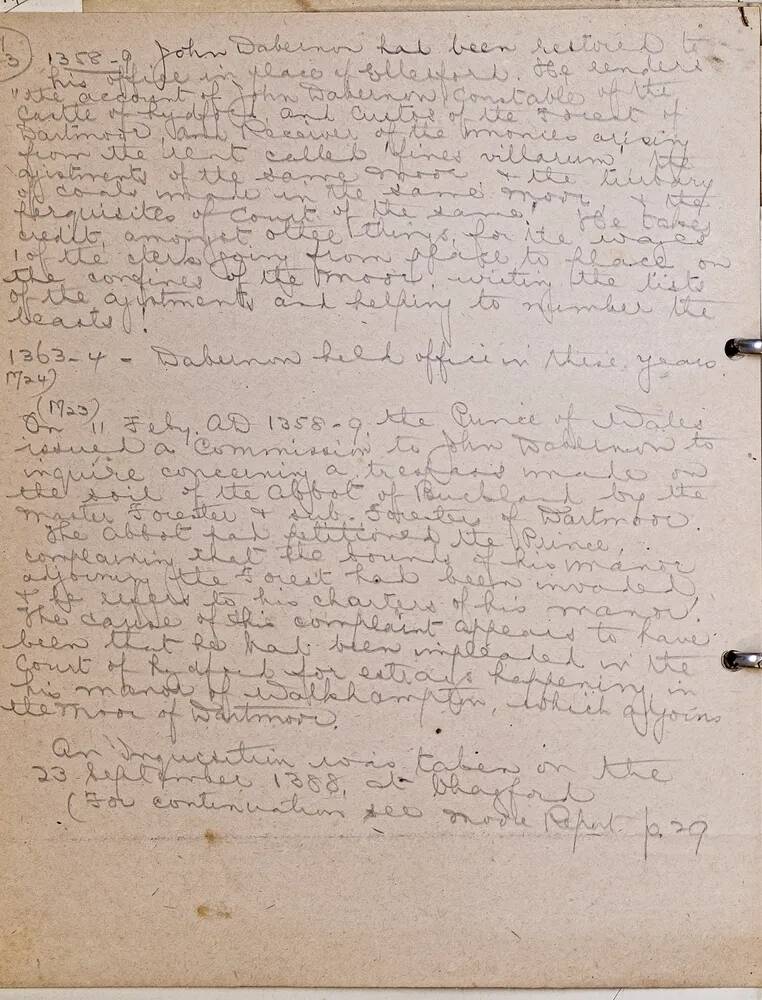 13
1358-9 John Dabernon had been restored to
his office in place of Ellesford. He renders
"the account of John Dabernon Constable of the
Castle of Lydford, and Custos of the Forest of
Dartmoor, and Receiver of the monies arising
from the rent called 'fines villarum', the
agistments of the same moor & the turbary
of coals made in the same moor, & the
perquisites of Court of the same." He takes
credit, amongst other things, for the wages
'of the clerk going from place to place on
the confines of the moor, writing the lists
of the agistments and helping to number the
beasts'.
1363-4 - Dabernon held office in these years
M24)
(M23)
On 11 Feby. AD 1358-9, the Prince of Wales
issued a Commission to John Dabernon to
inquire concerning a trespass made on
the soil of the Abbot of Buckland by the
Master Forester & sub-Foresters of Dartmoor.
The Abbot had petitioned the Prince,
complaining that the bounds of his manor
adjoining the Forest had been invaded
& he refers to his charters of his manor.
The cause of this complaint appears to have
been that he had been impleaded in the
Court of Lydford for estrays happening in
his manor of Walkhampton, which adjoins
the moor of Dartmoor.
An Inquisition was taken on the
23 September 1388, at Chagford
(For continuation see Moore Report p. 29